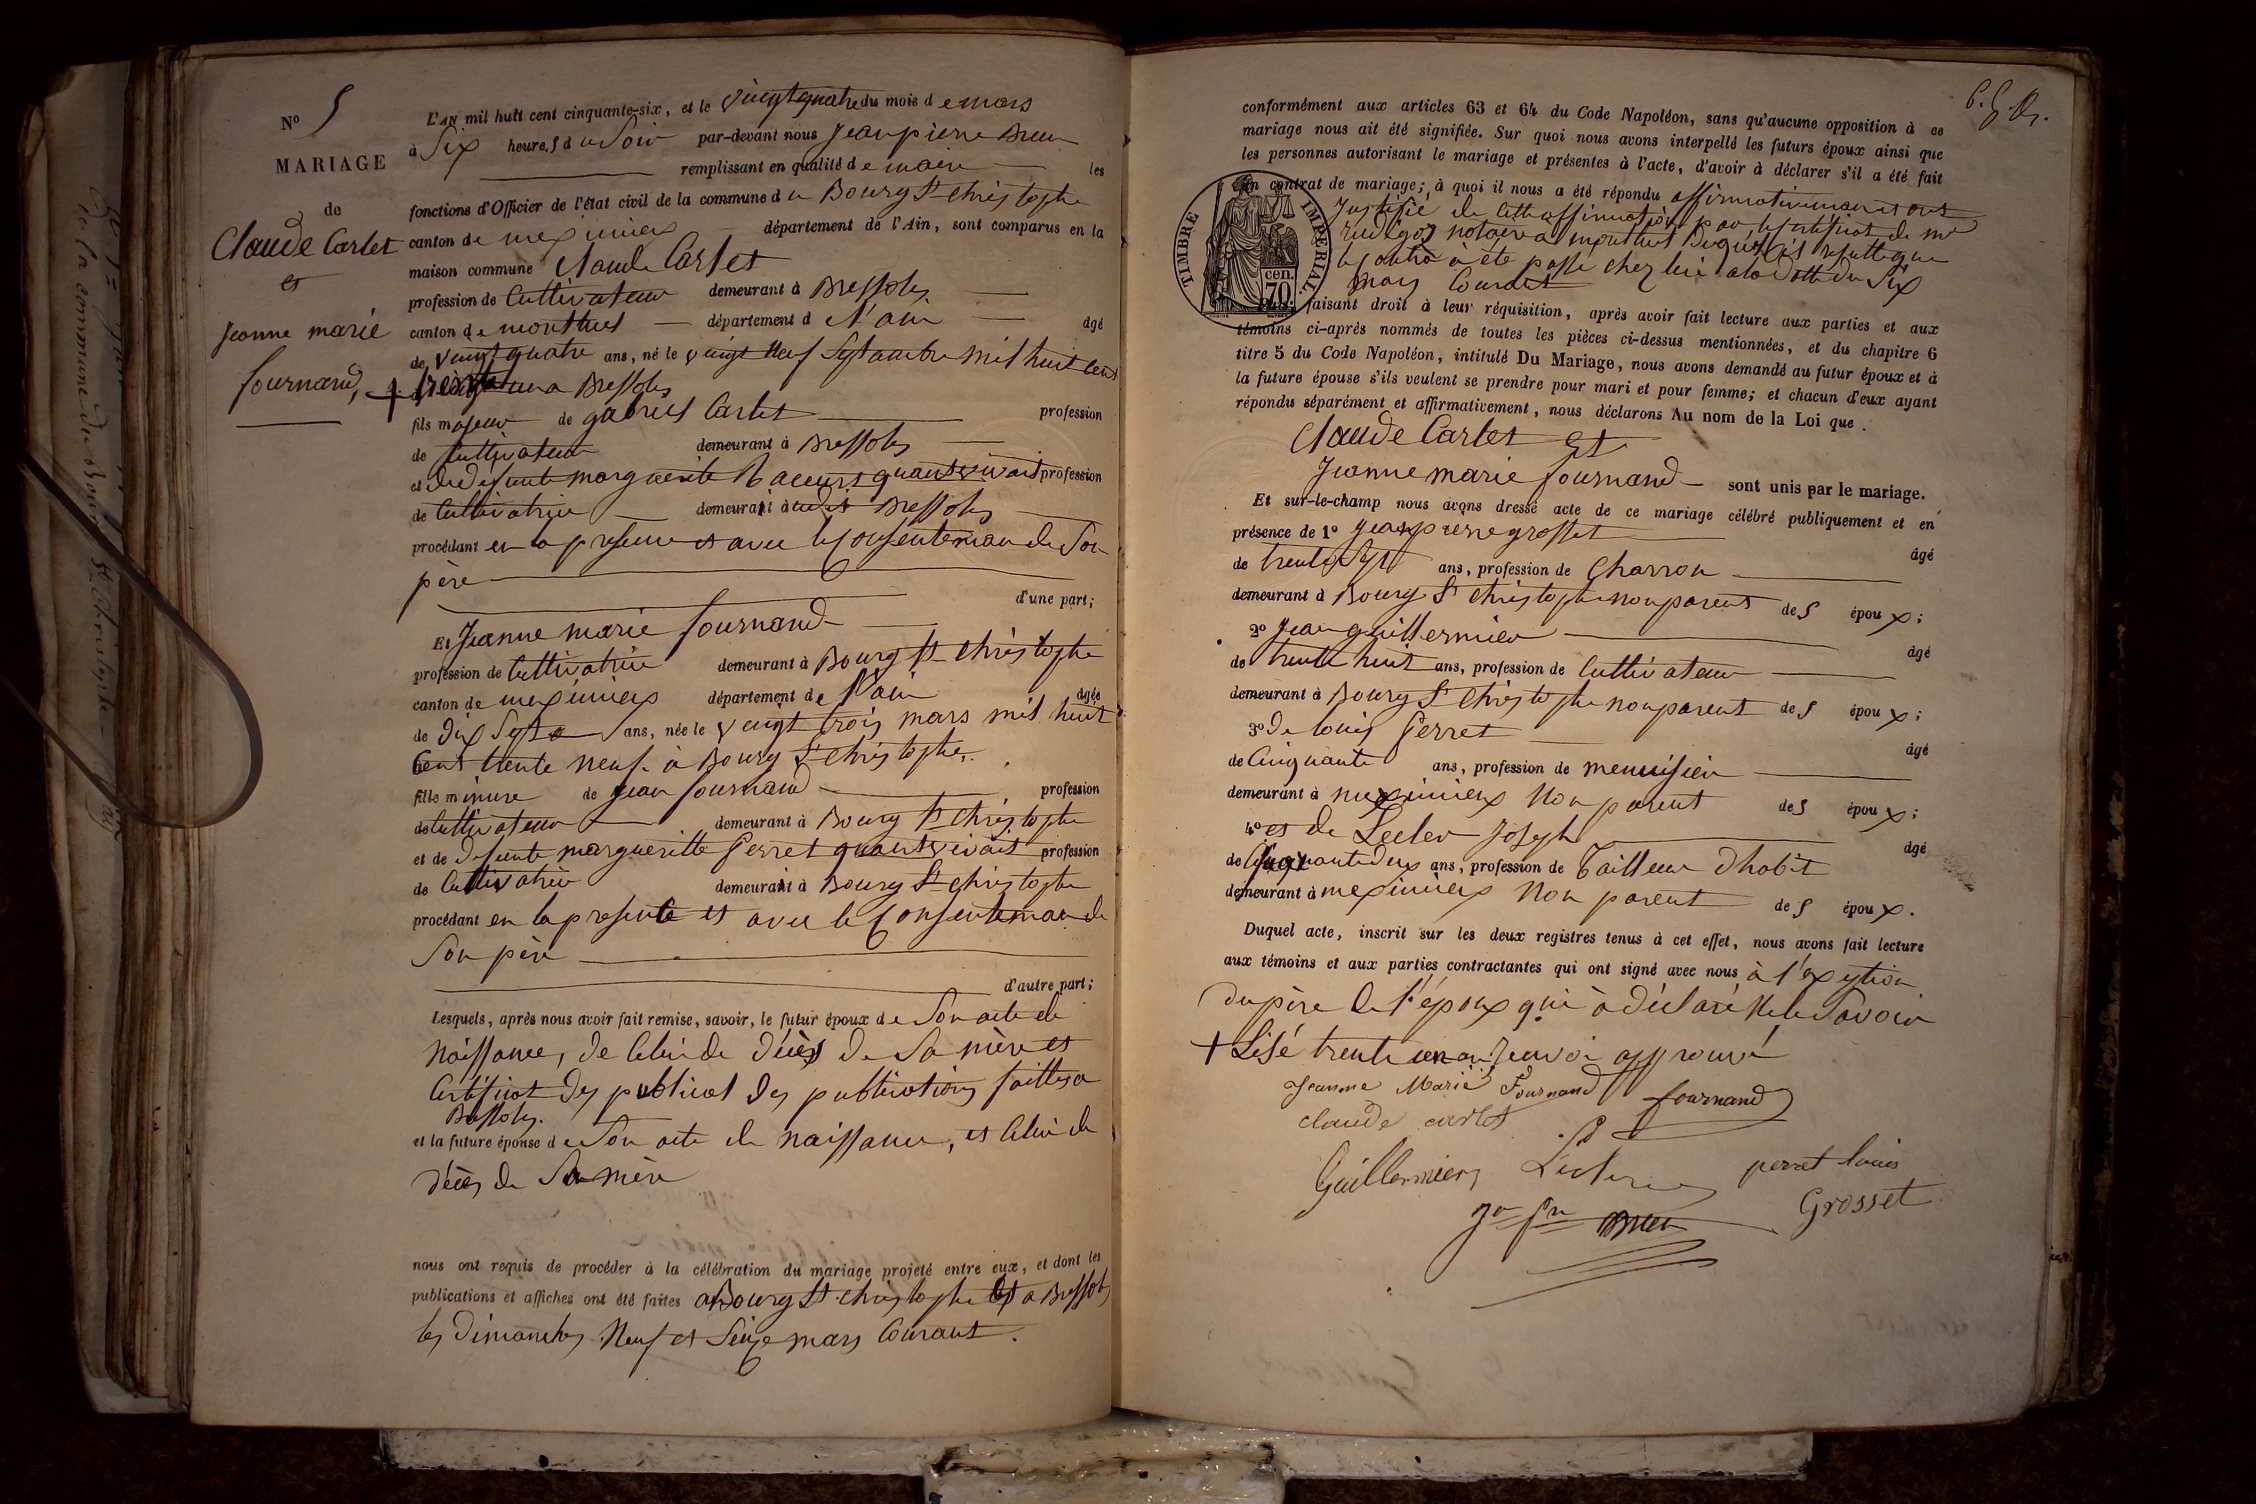 N° 5
MARIAGE
de
Claude Carlet
et
Jeanne marie
fournand,
L'AN mil huit cent cinquante-six, et le vingt quatre du mois de mars
à Six heures du Soir par-devant nous Jean pierre
remplissant en qualité de maire les
fonctions d'Officier de l'état civil de la commune du Bourg St christophe
canton de meximieux département de l'Ain, sont comparus en la
maison commune Claude Carlet
profession de Cultivateur demeurant à Bressolles
canton de montluel département de l'ain âgé
de vingt quatre ans, né le vingt Septembre mil huit cent
+ trente un a Bressolles
fils majeur de gabriel Carlet profession
de Cultivateur demeurant à Bressolles
et de défunte marguerite quant vivait profession
de Cultivatrice demeurait audit Bressolles
procédant en la presence et avec le Consenteman de Son
père
d'une part;
Et Jeanne marie fournand
profession de Cultivatrice demeurant à Bourg St christophe
canton de meximieux département de l'ain âgée
de dix Sept ans, née le vingt trois mars mil huit
Cent trente neuf à Bourg St christophe.
fille mineure de jean fournand profession
de Cultivateur demeurant à Bourg St christophe
et de défunte marguerite Perret quant vivait profession
de Cultivatrice demeurait à Bourg St christophe
procédant en la presente et avec le Consenteman de
Son père
d'autre part;
Lesquels, après nous avoir fait remise, savoir, le futur époux de Son acte de
Naissance, de Celui de décès de Sa mère et
Certificat des publicat des publications faittes a
Bressolles.
et la future épouse de Son acte de naissance, et Celui de
décès de Sa mère
nous ont requis de procéder à la célébration du mariage projeté entre eux, et dont les
publications et affiches ont été faites a Bourg St christophe et a Bressolles
les dimanches Neuf et Seize mars Courant.
conformément aux articles 63 et 64 du Code Napoléon, sans qu'aucune opposition à ce
mariage nous ait été signifiée. Sur quoi nous avons interpellé les futurs époux ainsi que
les personnes autorisant le mariage et présentes à l'acte, d'avoir à déclarer s'il a été fait
un contrat de mariage; à quoi il nous a été répondu affirmativement et ont
Justifié de Cette affirmation par le Certificat de me
notaire a montluel duquel il résulte que
le Contra à été passé chez lui a la datte du Six
mars Courant
TIMBRE IMPERIAL.
70 cen.
faisant droit à leur réquisition, après avoir fait lecture aux parties et aux
témoins ci-après nommés de toutes les pièces ci-dessus mentionnées, et du chapitre 6
titre 5 du Code Napoléon, intitulé Du Mariage, nous avons demandé au futur époux et à
la future épouse s'ils veulent se prendre pour mari et pour femme; et chacun d'eux ayant
répondu séparément et affirmativement, nous déclarons Au nom de la Loi que
Claude Carlet Et
Jeanne marie fournand sont unis par le mariage.
Et sur-le-champ nous avons dressé acte de ce mariage célébré publiquement et en
présence de 1° Jean pierre grosset âgé
de trente Sept ans, profession de Charron
demeurant à Bourg St christophe non parent des époux;
2° Jean guillermier âgé
de trente huit ans, profession de Cultivateur
demeurant à Bourg St christophe non parent des époux;
3° de louis Perret âgé
de Cinquante ans, profession de menuisier
demeurant à meximieux Non parent des époux;
4° et de Lecler Joseph âgé
de Cinquante deux ans, profession de Tailleur d'habit
demeurant à meximieux Non parent des époux.
Duquel acte, inscrit sur les deux registres tenus à cet effet, nous avons fait lecture
aux témoins et aux parties contractantes qui ont signé avec nous à l'exeption
du père de l'époux qui à déclaré Ne le Savoir
+ Lisé trente un an Renvoi approuvé
Jeanne Marie Fournand fournand
claude carlet
Guillermier Lecler perret louis
Grosset